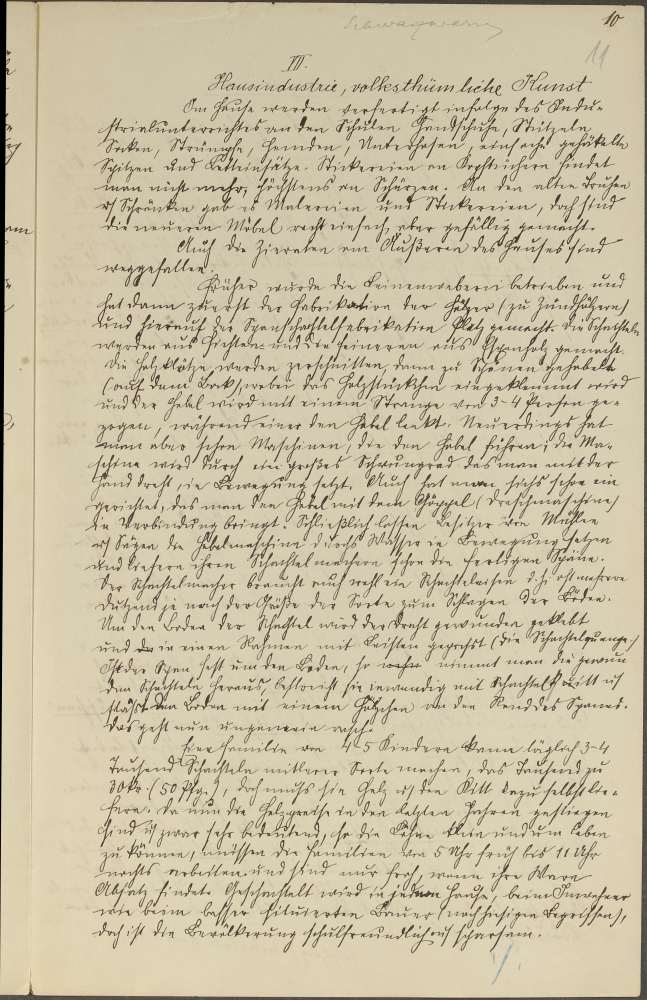 10
11
III.
Hausindustrie, volksthümliche Kunst
Im Hause werden verfertigt infolge des Indu-
strialunterrichtes an den Schulen Handschuhe, Stützeln
Socken, Strümpfe, Hemden, Unterhosen, einfache gehäkelte
Spitzen und Betteinsätze. Stickereien an Kopftüchern findet
man nicht mehr, höchstens an Schürzen. An den alten Truhen
u Schränken gab es Malereien und Stickereien, doch sind
die neueren Möbel recht einfach, aber gefällig gemacht.
Auch die Zieraten am Äußeren des Hauses sind
weggefallen.
Früher wurde die Leinenweberei betrieben und
hat dann zuerst der Fabrikation der Hölzer (zu Zündhölzern)
und hierauf der Spanschachtelfabrikation Platz gemacht. Die Schachteln
werden aus Fichten- und die feineren aus Espenholz gemacht.
Die Holzklötze werden zerschnitten, dann zu Spänen gehobelt
(auf dem Bock, wobei das Holzstückchen eingeklemmt wird
und der Hobel wird mit einem Strange von 3-4 Personen ge-
zogen, während einer den Hobel lenkt. Neuerdings hat
man aber schon Maschinen, die den Hobel führen; die Ma-
schine wird durch ein großes Schwungrad das man mit der
Hand dreht, in Bewegung setzt. Auch hat man sichs schon ein
gerichtet, das man den Hobel mit dem Göppel (Dreschmaschine)
in Verbindung bringt. Schließlich lassen Besitzer von Mühlen
u Sägen die Hobelmaschine durchs Wasser in Bewegung setzen
und liefern ihren Schachtelmachern schon die fertigen Späne.
Der Schachtelmacher braucht auch wohl ein Schachteleisen d.h. oft mehrere
Dutzend je nach der Größe der Sorte zum Schlagen der Böden.
Um den Boden der Schachtel wird der Draht gewunden geklebt
und in einen Rahmen mit Leisten gepreßt (die Schachtelzwenge)
Ist der Span fest um den Boden, so nimmt man die
den Schachteln heraus, bestreicht sie inwendig mit Schachtelkitt u
stößt den Boden mit einem Hölzchen an den Rand des Spanes.
Das geht nun ungemein rasch.
Eine Familie von 4-5 Kindern kann täglich 3-4
Tausend Schachteln mittlerer Sorte machen, das Tausend zu
30 kr. (50 Pfge.), doch muß sie Holz u den Kitt dazu selbst lie-
fern. Da nun die Holzpreise in den letzten Jahren gestiegen
sind u zwar sehr bedeutend, so die Löhne klein und um leben
zu können, müssen die Familien von 5 Uhr früh bis 11 Uhr
nachts arbeiten und sind nur froh, wenn ihre Ware
Absatz findet. Geschachtelt wird in jedem Hause, beim Inwohner
wie beim besser situierten Bauer (nach hiesigen Begriffen),
doch ist die Bevölkerung schulfreundlich u sparsam.